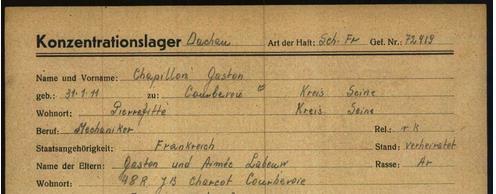 Konzentrationslager Dachau Art der Haft: Sch. Fr Gef. Nr.: 72419
Name und Vorname: Chapillon Gaston
geb.: 31.1.11 zu: Courbevoie Kreis Seine
Wohnort: Pierrefitte Kreis. Seine
Beruf: Mechaniker Rel.: r. k
Staatsangehörigkeit: Frankreich Stand: verheiratet
Name der Eltern: Gaston und Aimée Rasse: Ar
Wohnort: 48 R. JB Charcot Courbevoie